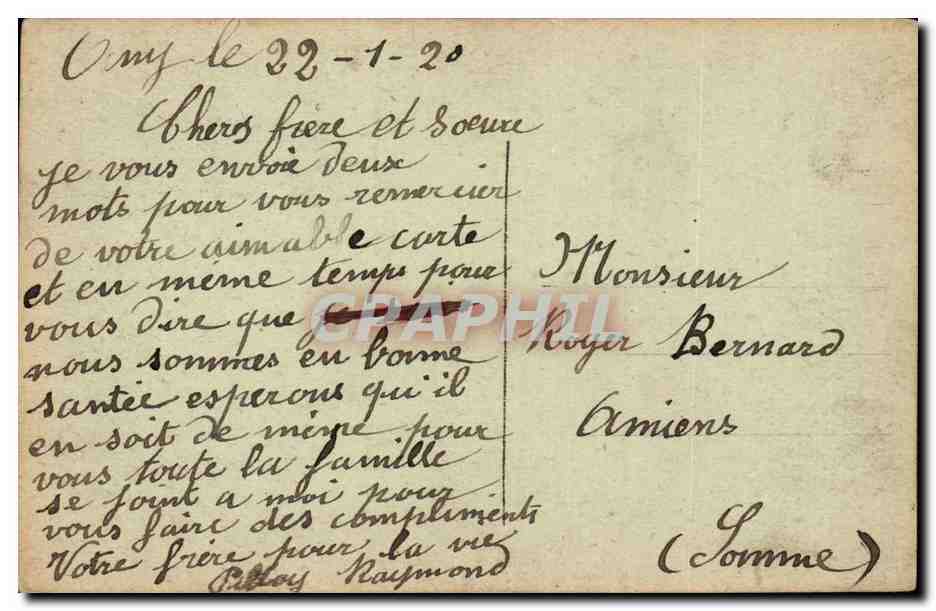 le 22-1-20
Chers frère et Soeure
je vous envoie deux
mots pour vous remercier
de votre aimable carte
et en meme temps pour
vous dire que
nous sommes en bonne
santée esperons qu'il
en soit de même pour
vous toute la famille
se joint a moi pour
vous faire des compliments
Votre frère pour la vie
Raymond
Monsieur
Roger Bernard
Amiens
(Somme)
CPAPHIL